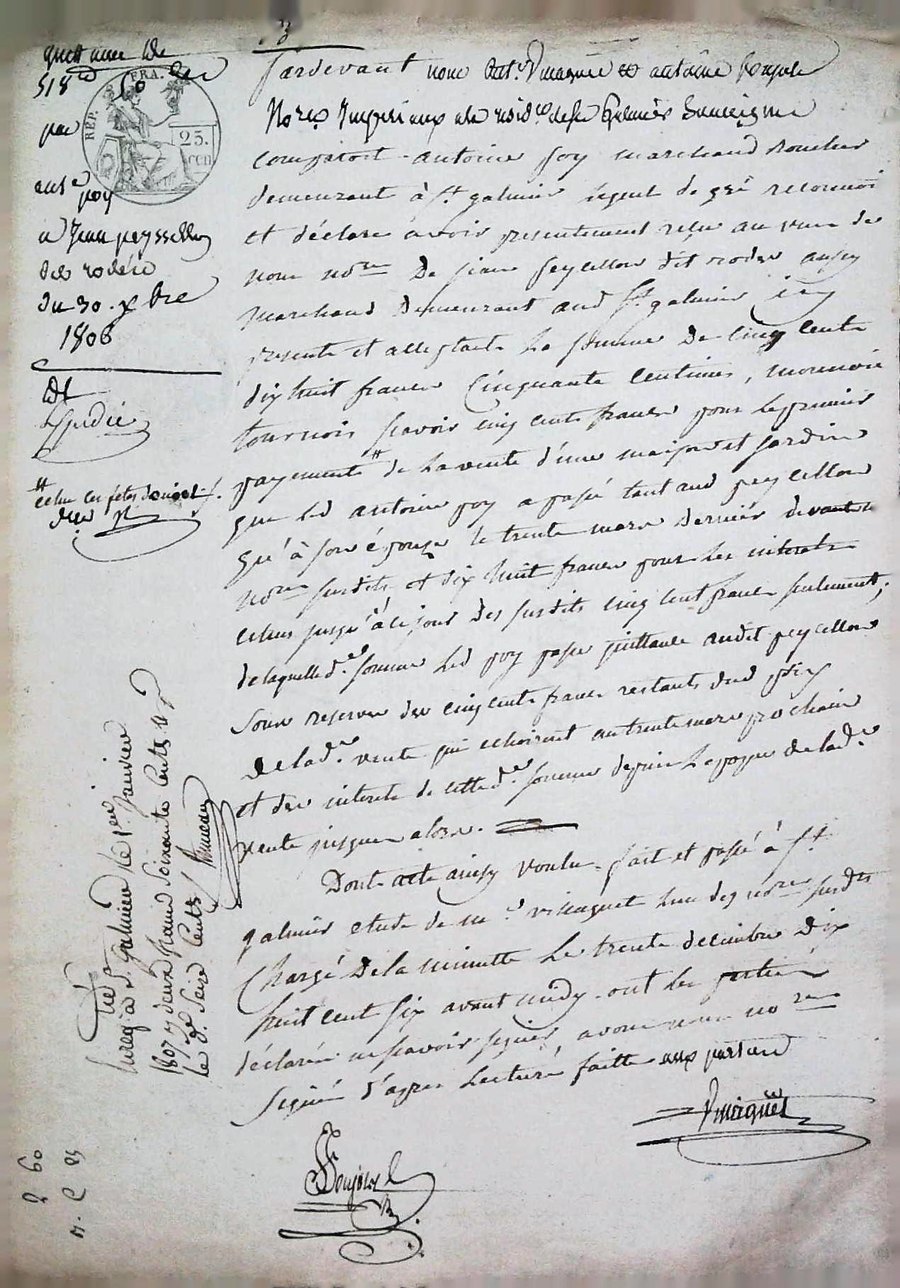 quittance de
518 fd 50 c
par
ant.e poy
a Jean peyssellon
dit rodéré
du 30. xbre
1806
Dt
Expédié
RÉP. FRA.
25.
CEN
3
Pardevant nous Bat.e Vinagnée et antoine
No.res Imperiaux a la resid.ce de St Galmier Soussignés
Comparoit antoine poy marchand Boucher
demeurant à St. galmier lequel de gré reconnoi
et déclare avoir presentement reçu au vue de
nous no.res De jean peycellon dit rodere aussy
marchand Demeurant aud St. galmier icy
present et acceptant La somme De Cinq cents
dix huit francs Cinquante Centimes, monnoie
tournois scavoir cinq cents francs pour le premier
payements # de La vente d'une maison et Jardin
que led antoine poy a passé tant aud peycellon
qu'à son épouse le trente mars dernier devant
no.res susdits et dix huit francs pour les interets
echus jusqu'à ce jour des susdits cinq cent francs seulement;
de laquelle d.e somme led poy passe quittance audit peycellon
sous reserves des cinq cents francs restants dud prix
de lad.e vente qui echoiront au trente mars prochain
et des interets de cette d.e somme depuis La passe de lad.e
vente jusques alors.
Dont acte ainsy voulu, fait et passé à St
galmier etude de m.e vinagnet l'un des no.res susdts
Chargé De la minutte Le trente decembre Dix
huit cent six avant midy. ont les parties
déclaré ne scavoir signer, avons nous no.res
Signé d'apres Lecture faitte aux parties
# echu ces fetes de noel
enreg.é à St. galmier le 1er janvier
1807 reçu deux francs soixante cents
le d.e seize cents
2 60
25